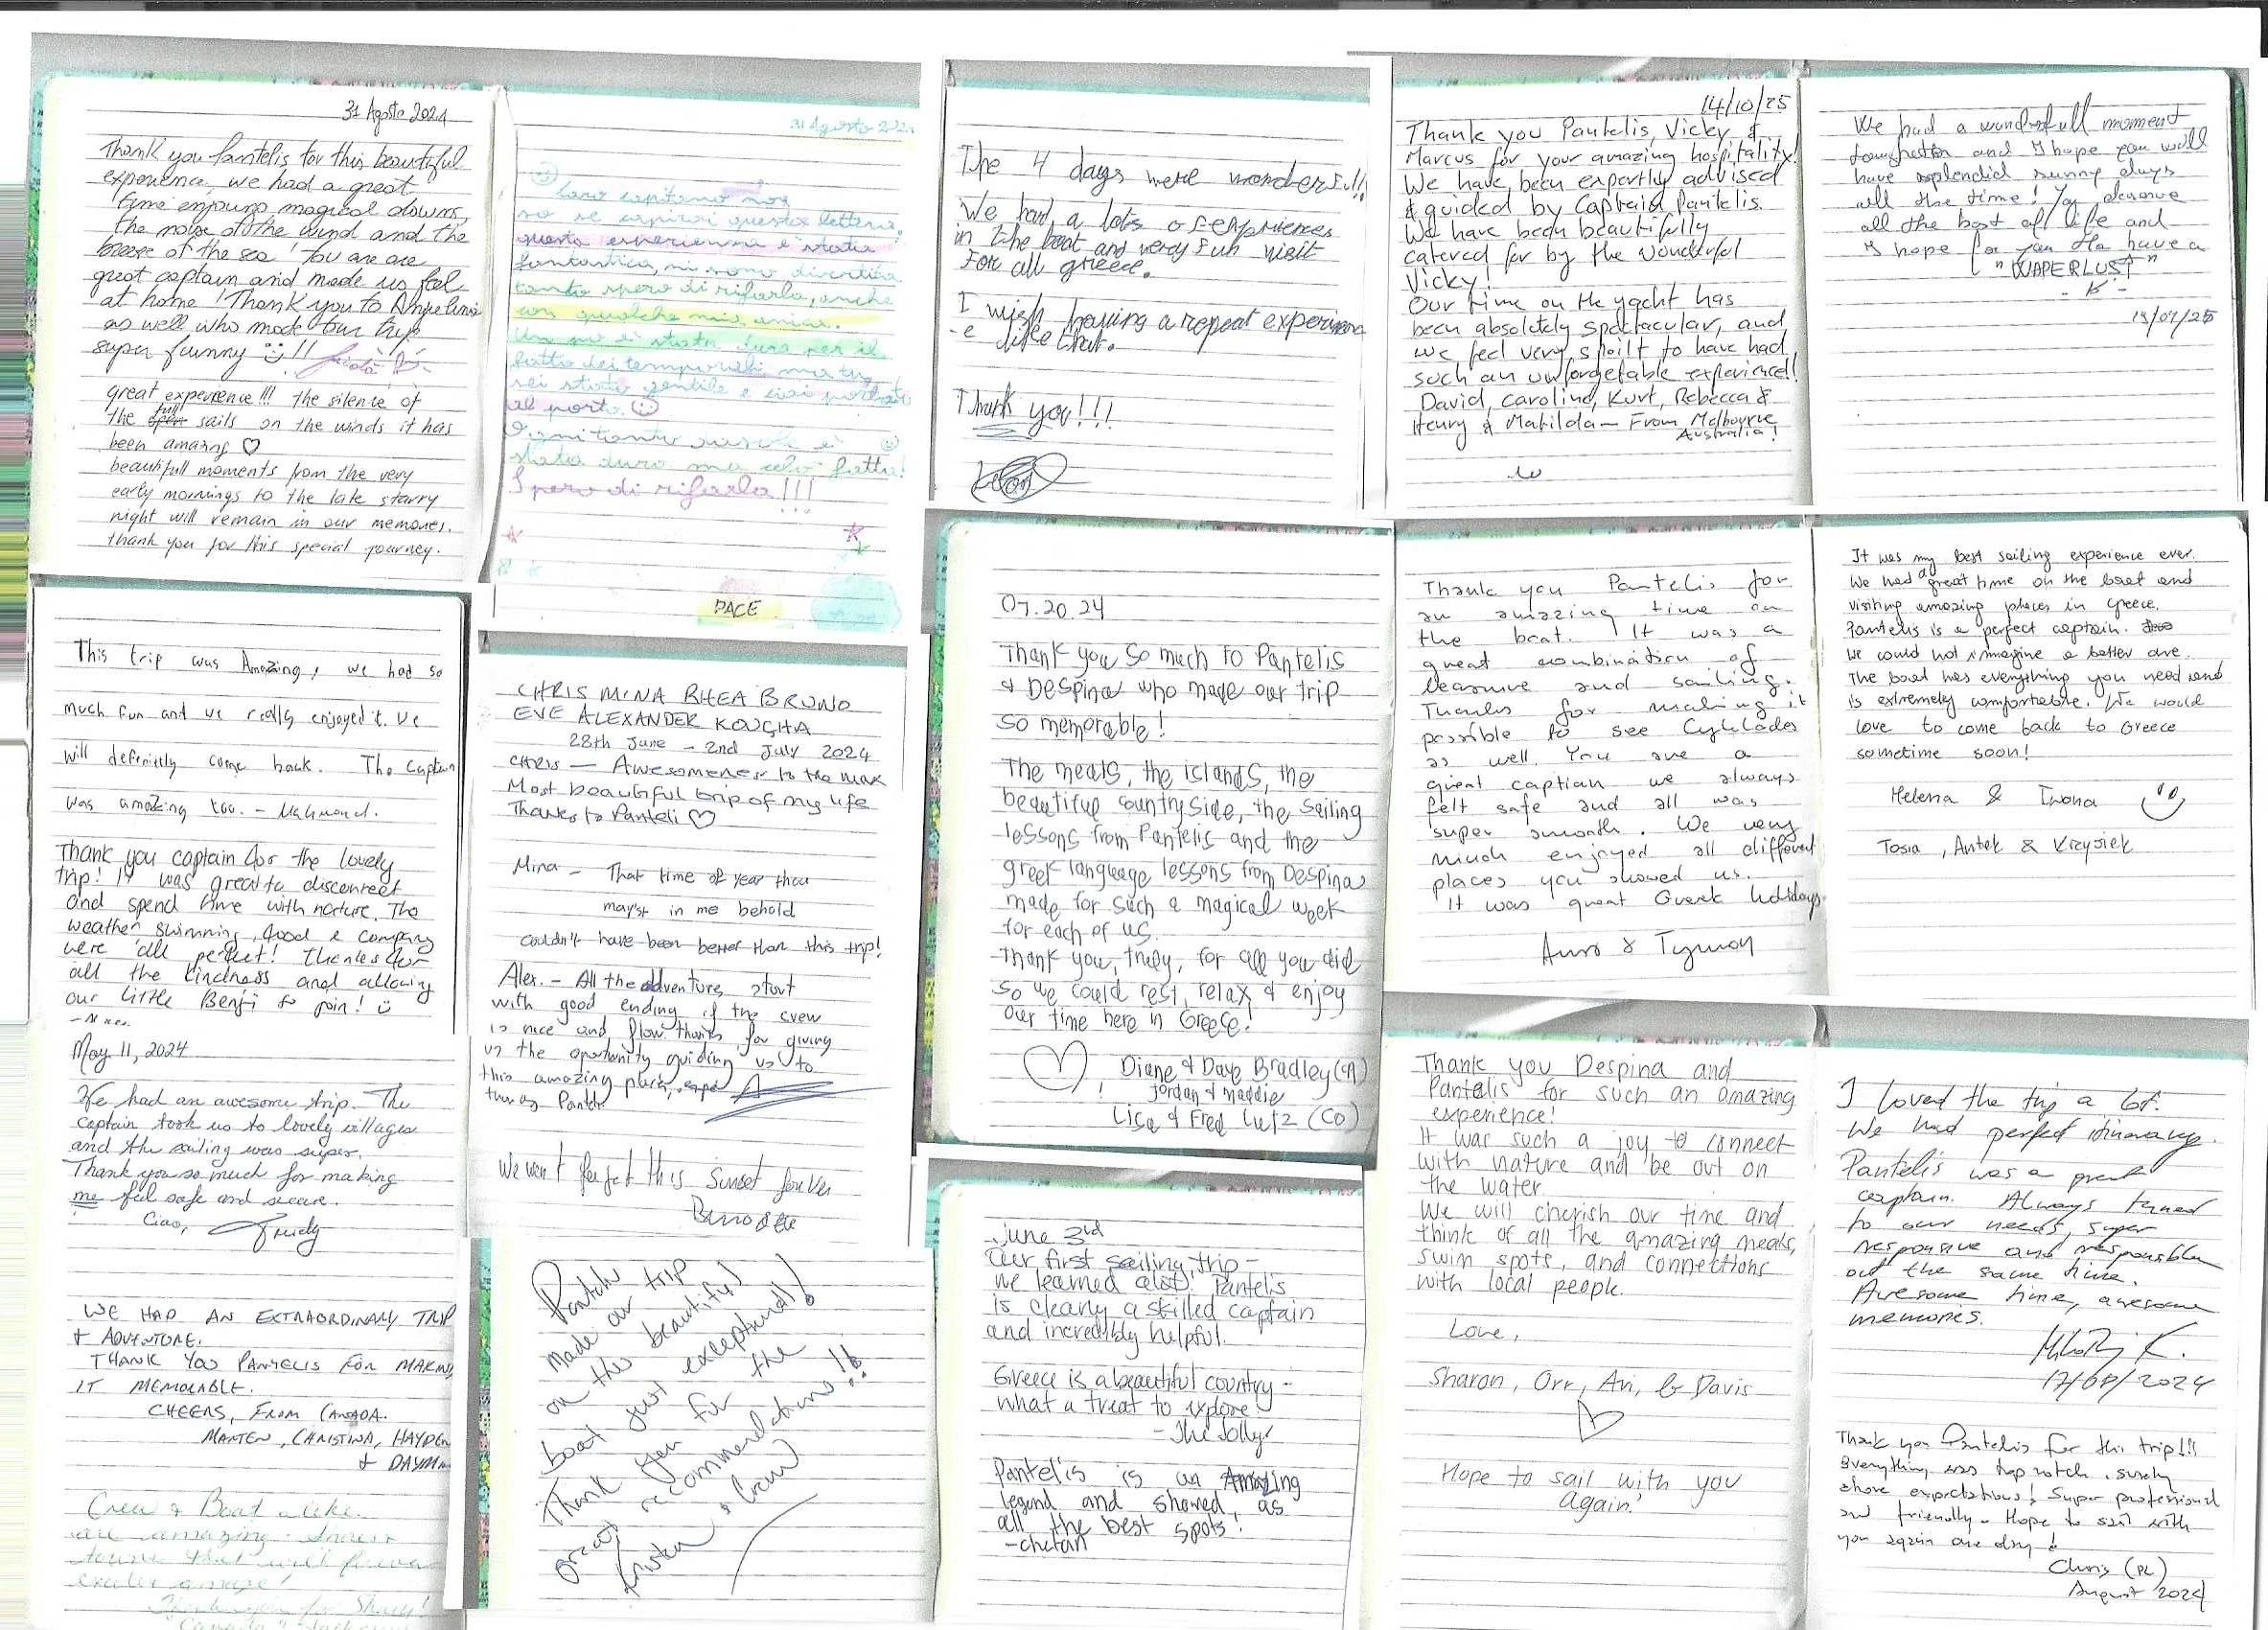 31 Agosto 2024
Thank you Pantelis for this beautiful
experience, we had a great
time enjoing magical downs,
the noise of the wind and the
breeze of the sea! You are are
great captain and made us feel
at home! Thank you to Angelina
as well who made our trip
super funny !!!
great experience!!! the silence of
the full sails on the winds it has
been amazing ♡
beautifull moments from the very
early mornings to the late starry
night will remain in our memories.
thank you for this special journey.
31 Agosto 2024
Caro capitano non
so se capirai questa lettera,
questa esperienza è stata
fantastica, mi sono divertita
tanto spero di rifarla, anche
con qualche mia amica.
Un po è stata dura per il
fatto dei temporali ma tu
sei stato gentile e ci hai portato
al porto. ☺
Ogni tanto
stata duro ma celo fatta!
Spero di rifarla!!!
PACE
The 4 days were wonderful!!
We had a lots of experiences
in the boat and very fun visit
for all greece.
I wish having a repeat experienc
-e like that.
Thank you!!!
14/10/25
Thank you Pantelis, Vicky &
Marcus for your amazing hospitality!
We have been expertly advised
& guided by Captaid Pantelis.
We have been beautifully
catered for by the wonderful
Vicky!
Our time on the yacht has
been absolutely spectacular, and
we feel very spoilt to have had
such an unforgetable experience!!
David, Caroline, Kurt, Rebecca &
Henry & Matilda — From Melbourne
Australia!
We had a wonderfull moment
and I hope you will
have splendid sunny days
all the time! You deserve
all the best of life and
I hope for you the have a
"WAPERLUST"
/07/25
This trip was Amazing, we had so
much fun and we really enjoyed it. We
will definietly come back. The Captain
was amazing too. - Mahmoud.
Thank you captain for the lovely
trip! It was great to disconnect
and spend time with nature. The
weather, swimming, food & company
were all perfect! Thanks for
all the kindness and allowing
our little Benji to join! ☺
May 11, 2024
We had an awesome trip. The
captain took us to lovely villages
and the sailing was super.
Thank you so much for making
me feel safe and secure.
Ciao,
WE HAD AN EXTRAORDINARY TRIP
& ADVENTURE.
THANK YOU PANTELIS FOR MAKING
IT MEMORABLE.
CHEERS, FROM CANADA.
MARTEN, CHRISTINA, HAYDEN
&
Crew & Boat alike
are amazing.
CHRIS MINA RHEA BRUNO
EVE ALEXANDER KOUCHA
28th June - 2nd July 2024
CHRIS — Awesomeness to the max
Most beautiful trip of my life
Thanks to Panteli ♡
Mina - That time of year thou
may'st in me behold
couldn't have been better than this trip!
Alex. - All the adventure start
with good ending if the crew
is nice and flow thanks for giving
us the oportunity guiding us to
this amazing place,
thanks Panteli
We wont forget this Sunset forever
Pantelis
made our trip
on this beautiful
boat just exceptional!
Thank you for the
great recommendations!!
& Crew
07.20.24
Thank you so much to Pantelis
& Despina who made our trip
so memorable!
The meals, the islands, the
beautiful countryside, the sailing
lessons from Pantelis and the
greek language lessons from Despina
made for such a magical week
for each of us.
Thank you, truly, for all you did
so we could rest, relax & enjoy
our time here in Greece!
♡, Diane & Dave Bradley (CA)
Jordan & Maddie
Lisa & Fred Lutz (CO)
June 3rd
Our first sailing trip -
we learned alot! Pantelis
is clearly a skilled captain
and incredibly helpful.
Greece is a beautiful country -
what a treat to explore!
- The Jollys
Pantelis is an Amazing
legend and showed, as
all the best spots!
- chetan
Thank you Pantelis for
an amazing time on
the boat. It was a
great combination of
leasure and sailing.
Thanks for making it
possible to see Cyklades
as well. You are a
great captian we always
felt safe and all was
super smooth. We very
much enjoyed all different
places you showed us.
It was great Greek holidays
& Tymon
It was my best sailing experience ever.
We had a great time on the boat and
visiting amazing places in Greece.
Pantelis is a perfect captain.
We could not imagine a better one.
The boat has everything you need and
is extremely comfortable. We would
love to come back to Greece
sometime soon!
Helena & Iwona
Tosia, Antek & Krzysiek
Thank you Despina and
Pantelis for such an amazing
experience!
It was such a joy to connect
with nature and be out on
the water.
We will cherish our time and
think of all the amazing meals,
swim spots, and connections
with local people.
Love,
Sharon, Orr, Avi, & Davis
♡
Hope to sail with you
again!
I loved the trip a lot.
We had perfect itinerary.
Pantelis was a great
captain. Always tuned
to our needs, super
responsive and responsible
at the same time.
Awesome time, awesome
memories.
K.
17/08/2024
Thank you Pantelis for this trip!!!
Everything was top notch, surely
above expectations! Super professional
and friendly. Hope to sail with
you again one day!
Chris (PL)
August 2024